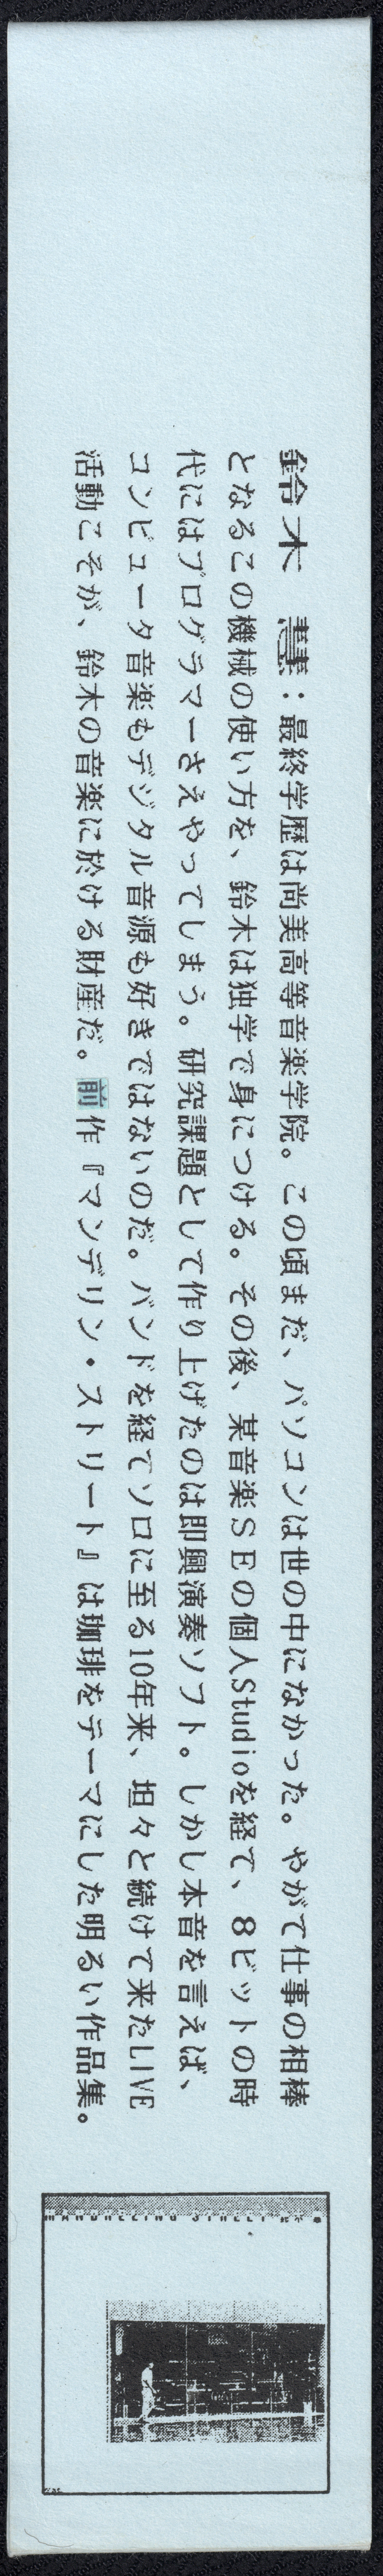 鈴木　慧：最終学歴は尚美高等音楽学院。この頃まだ、パソコンは世の中になかった。やがて仕事の相棒
となるこの機械の使い方を、鈴木は独学で身につける。その後、某音楽ＳＥの個人Studioを経て、８ビットの時
代にはプログラマーさえやってしまう。研究課題として作り上げたのは即興演奏ソフト。しかし本音を言えば、
コンピュータ音楽もデジタル音源も好きではないのだ。バンドを経てソロに至る10年来、坦々と続けて来たLIVE
活動こそが、鈴木の音楽に於ける財産だ。前作『マンデリン・ストリート』は珈琲をテーマにした明るい作品集。